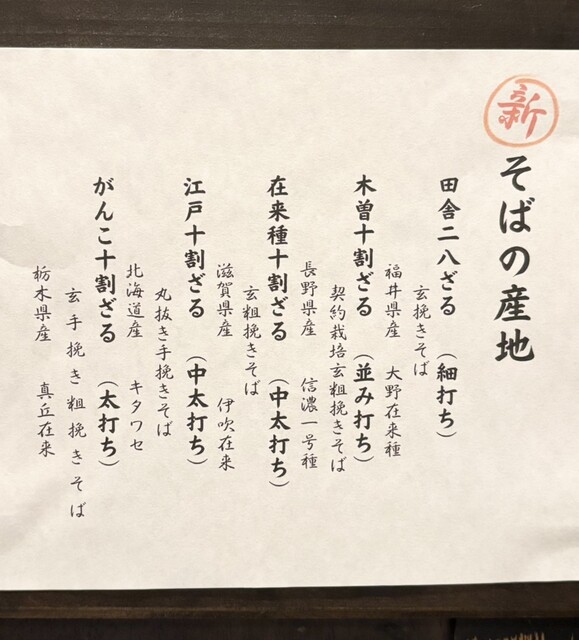 新
そばの産地
田舎二八ざる (細打ち)
玄挽きそば
福井県産 大野在来種
木曽十割ざる (並み打ち)
契約栽培玄粗挽きそば
長野県産 信濃一号種
在来種十割ざる (中太打ち)
玄粗挽きそば
滋賀県産 伊吹在来
江戸十割ざる (中太打ち)
丸抜き手挽きそば
北海道産 キタワセ
がんこ十割ざる (太打ち)
玄手挽き粗挽きそば
栃木県産 真丘在来